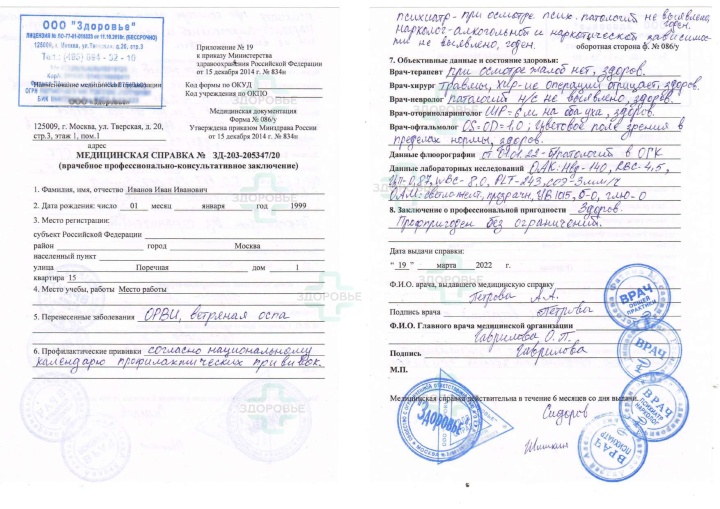 ООО "Здоровье"
ЛИЦЕНЗИЯ
125009, г. Москва, ул.Тверская, д.20, стр.3
Наименование медицинской организации
ООО «Здоровье»
125009, г. Москва, ул. Тверская, д. 20,
стр.3, этаж 1, пом.1
адрес
Приложение № 19
к приказу Министерства
здравоохранения Российской Федерации
от 15 декабря 2014 г. № 834н
Код формы по ОКУД
Код учреждения по ОКПО
Медицинская документация
Форма № 086/у
Утверждена приказом Минздрава России
от 15 декабря 2014 г. № 834н
МЕДИЦИНСКАЯ СПРАВКА № ЗД-203-205347/20
(врачебное профессионально-консультативное заключение)
1. Фамилия, имя, отчество Иванов Иван Иванович
2. Дата рождения: число 01 месяц января год 1999
3. Место регистрации:
субъект Российской Федерации
район город Москва
населенный пункт
улица Поречная дом 1
квартира 15
4. Место учебы, работы Место работы
5. Перенесенные заболевания ОРВИ, ветряная оспа
6. Профилактические прививки согласно национальному
календарю профилактических прививок.
ЗДОРОВЬЕ
ЗДОРОВЬЕ
ЗДОРОВЬЕ
ЗДОРОВЬЕ
психиатр - при осмотре псих. патологии не выявлено, годен.
нарколог - алкогольной и наркотической зависимости не выявлено, годен.
оборотная сторона ф. № 086/у
7. Объективные данные и состояние здоровья:
Врач-терапевт при осмотре жалоб нет, здоров.
Врач-хирург травмы, хир-ие операции отрицает, здоров.
Врач-невролог патологии н/с не выявлено, здоров.
Врач-оториноларинголог ШР-6 м на оба уха, здоров.
Врач-офтальмолог OS=OD=1,0; цветовое поле зрения в
пределах нормы, здоров.
Данные флюорографии от 01.01.22 - б/патологий в ОГК
Данные лабораторных исследований ОАК: Hg-140, RBC-4,5,
WBC-8.0, PLT-243, СОЭ-3мм/ч
8. Заключение о профессиональной пригодности Здоров.
Профпригоден без ограничений.
Дата выдачи справки:
" 19 " марта 2022 г.
Ф.И.О. врача, выдавшего медицинскую справку
Петрова А.А.
Подпись врача Петрова
Ф.И.О. Главного врача медицинской организации
Гаврилова О.П.
Подпись Гаврилова
М.П.
Медицинская справка действительна в течение 6 месяцев со дня выдачи.
Сидоров
Шишкин
ВРАЧ
ОБЩЕЙ ПРАКТИКИ
ВРАЧ
ВРАЧ
ПСИХИАТР НАРКОЛОГ
ВРАЧ
ПСИХИАТР
Здоровье